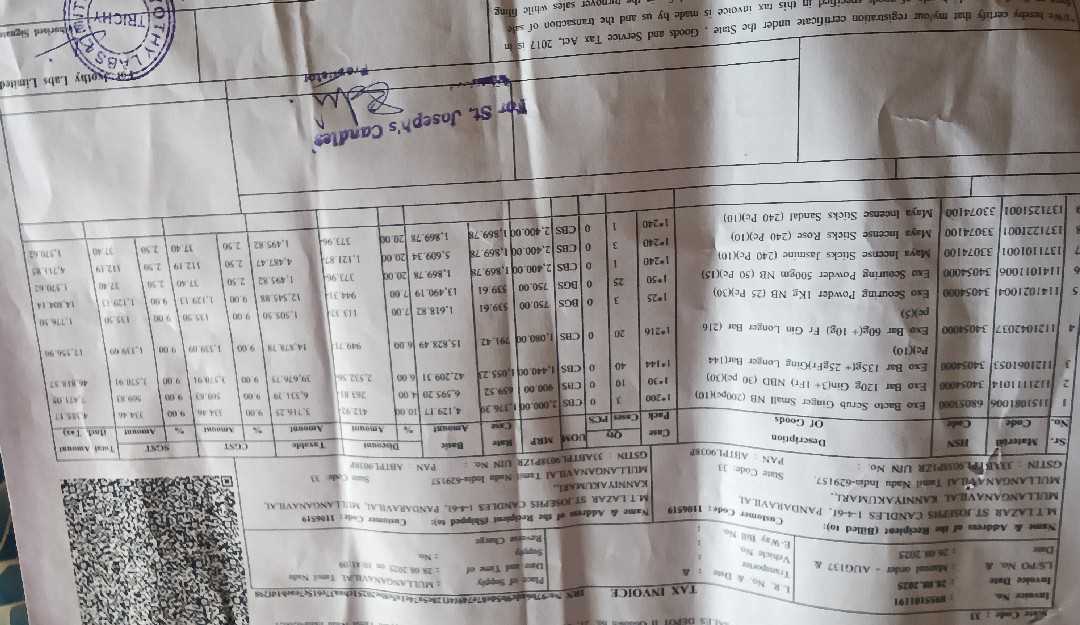 State Code : 33
TAX INVOICE
Invoice No. : 8955101191
Invoice Date : 28.08.2025
LS/PO No. & : Manual order - AUG137 &
Date : 26.08.2025
L.R. No. & Date : &
Transporter :
Vehicle No :
E-Way Bill No. :
Place of Supply : MULLANGANAVILAI, Tamil Nadu
Date and Time of : 28.08.2025 on
Supply
Reverse Charge : No
Name & Address of the Recipient (Billed to): Customer Code: 1106519
M T LAZAR ST JOSEPHS CANDLES 1-4-61, PANDARAVILAI,
MULLANGANAVILAI, KANNIYAKUMARI,
MULLANGANAVILAI Tamil Nadu India-629157,
State Code: 33
GSTIN : 33ABTPL9038P1ZR UIN No. : PAN : ABTPL9038P
Name & Address of the Recipient (Shipped to): Customer Code: 1106519
M T LAZAR ST JOSEPHS CANDLES 1-4-61, PANDARAVILAI, MULLANGANAVILAI,
KANNIYAKUMARI,
MULLANGANAVILAI Tamil Nadu India-629157 State Code: 33
GSTIN : 33ABTPL9038P1ZR UIN No. : PAN : ABTPL9038P
Sr. No. Material Code HSN Code Description Of Goods Case Pack Qty Cases PCS UOM MRP Rate Case Basic Amount Discount % Amount Taxable Amount CGST % Amount SGST % Amount Total Amount (Incl. Tax)
1 1151081006 68053000 Exo Bacto Scrub Ginger Small NB (200pc)(10) 1*200 3 0 CBS 2,000.00 1,376.39 4,129.17 10.00 412.92 3,716.25 9.00 334.46 9.00 334.46 4,385.17
2 1121111014 34054000 Exo Bar 120g Gin(3+ 1Fr) NBD (30 pc)(30) 1*30 10 0 CBS 900.00 659.52 6,595.20 4.00 263.81 6,331.39 9.00 569.83 9.00 569.83 7,471.05
3 1121061053 34054000 Exo Bar 135gt+ 25gFr(Ging Longer Bar(144 Pc)(10) 1*144 40 0 CBS 1,440.00 1,055.23 42,209.31 6.00 2,532.56 39,676.75 9.00 3,570.91 9.00 3,570.91 46,818.57
4 1121042037 34054000 Exo Bar 60g(+ 10g) Fr Gin Longer Bar (216 pc)(5) 1*216 20 0 CBS 1,080.00 791.42 15,828.49 6.00 949.71 14,878.78 9.00 1,339.09 9.00 1,339.09 17,556.96
5 1141021004 34054000 Exo Scouring Powder 1Kg NB (25 Pc)(30) 1*25 3 0 BGS 750.00 539.61 1,618.82 7.00 113.32 1,505.50 9.00 135.50 9.00 135.50 1,776.50
6 1141011006 34054000 Exo Scouring Powder 500gm NB (50 Pc)(15) 1*50 25 0 BGS 750.00 539.61 13,490.19 7.00 944.31 12,545.88 9.00 1,129.13 9.00 1,129.13 14,804.14
7 1371101001 33074100 Maya Incense Sticks Jasmine (240 Pc)(10) 1*240 1 0 CBS 2,400.00 1,869.78 1,869.78 20.00 373.96 1,495.82 2.50 37.40 2.50 37.40 1,570.62
8 1371221001 33074100 Maya Incense Sticks Rose (240 Pc)(10) 1*240 3 0 CBS 2,400.00 1,869.78 5,609.34 20.00 1,121.87 4,487.47 2.50 112.19 2.50 112.19 4,711.85
1371251001 33074100 Maya Incense Sticks Sandal (240 Pc)(10) 1*240 1 0 CBS 2,400.00 1,869.78 1,869.78 20.00 373.96 1,495.82 2.50 37.40 2.50 37.40 1,570.62
For St. Joseph's Candles
Proprietor
I/We hereby certify that my/our registration certificate under the State . Goods and Service Tax Act, 2017 is in
specified in this tax invoice is made by us and the transaction of sale
turnover sales while filing
For Jyothy Labs Limited
JYOTHY LABS LIMITED
TRICHY
Authorised Signatory